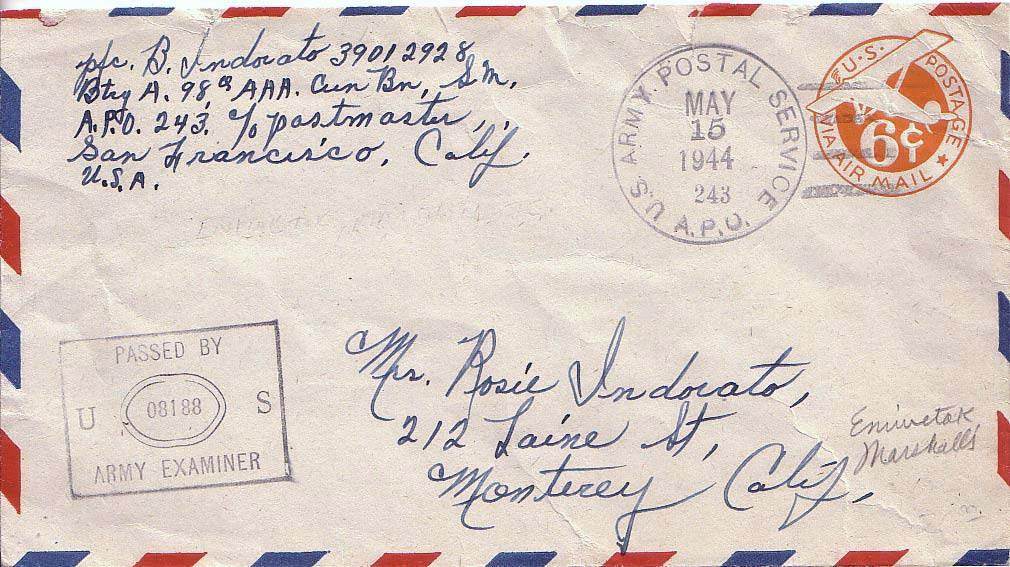 pfc. B. Indorato 39012928
Btry A. 98th AAA. Gun Bn, S.M,
A.P.O. 243. c/o postmaster,
San Francisco, Calif.
U.S.A.
U.S. ARMY. POSTAL SERVICE
MAY
15
1944
243
A.P.O.
U.S. POSTAGE
6¢
VIA AIR MAIL
PASSED BY
U 08188 S
ARMY EXAMINER
Mrs. Rosie Indorato,
212 Laine St,
Monterey Calif,
Eniwetok
Marshalls